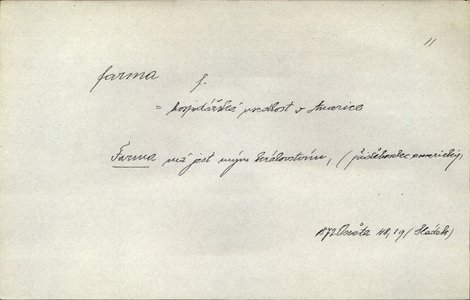 11
farma f.
= hospodářská usedlost v Americe
Farma má jest mým královstvím, (přistěhovalec americký)
1872 Osvěta 48, 19 (Sládek)